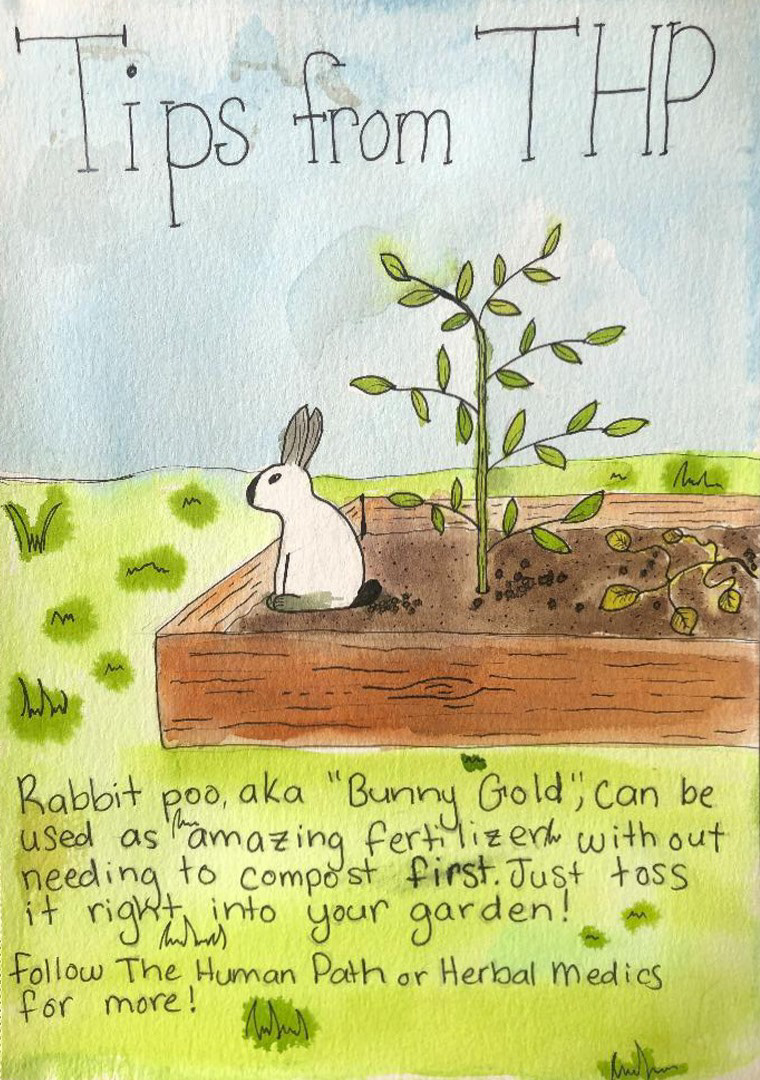 Tips from THP
Rabbit poo, aka "Bunny Gold", can be
used as amazing fertilizer without
needing to compost first. Just toss
it right into your garden!
Follow The Human Path or Herbal Medics
for more!